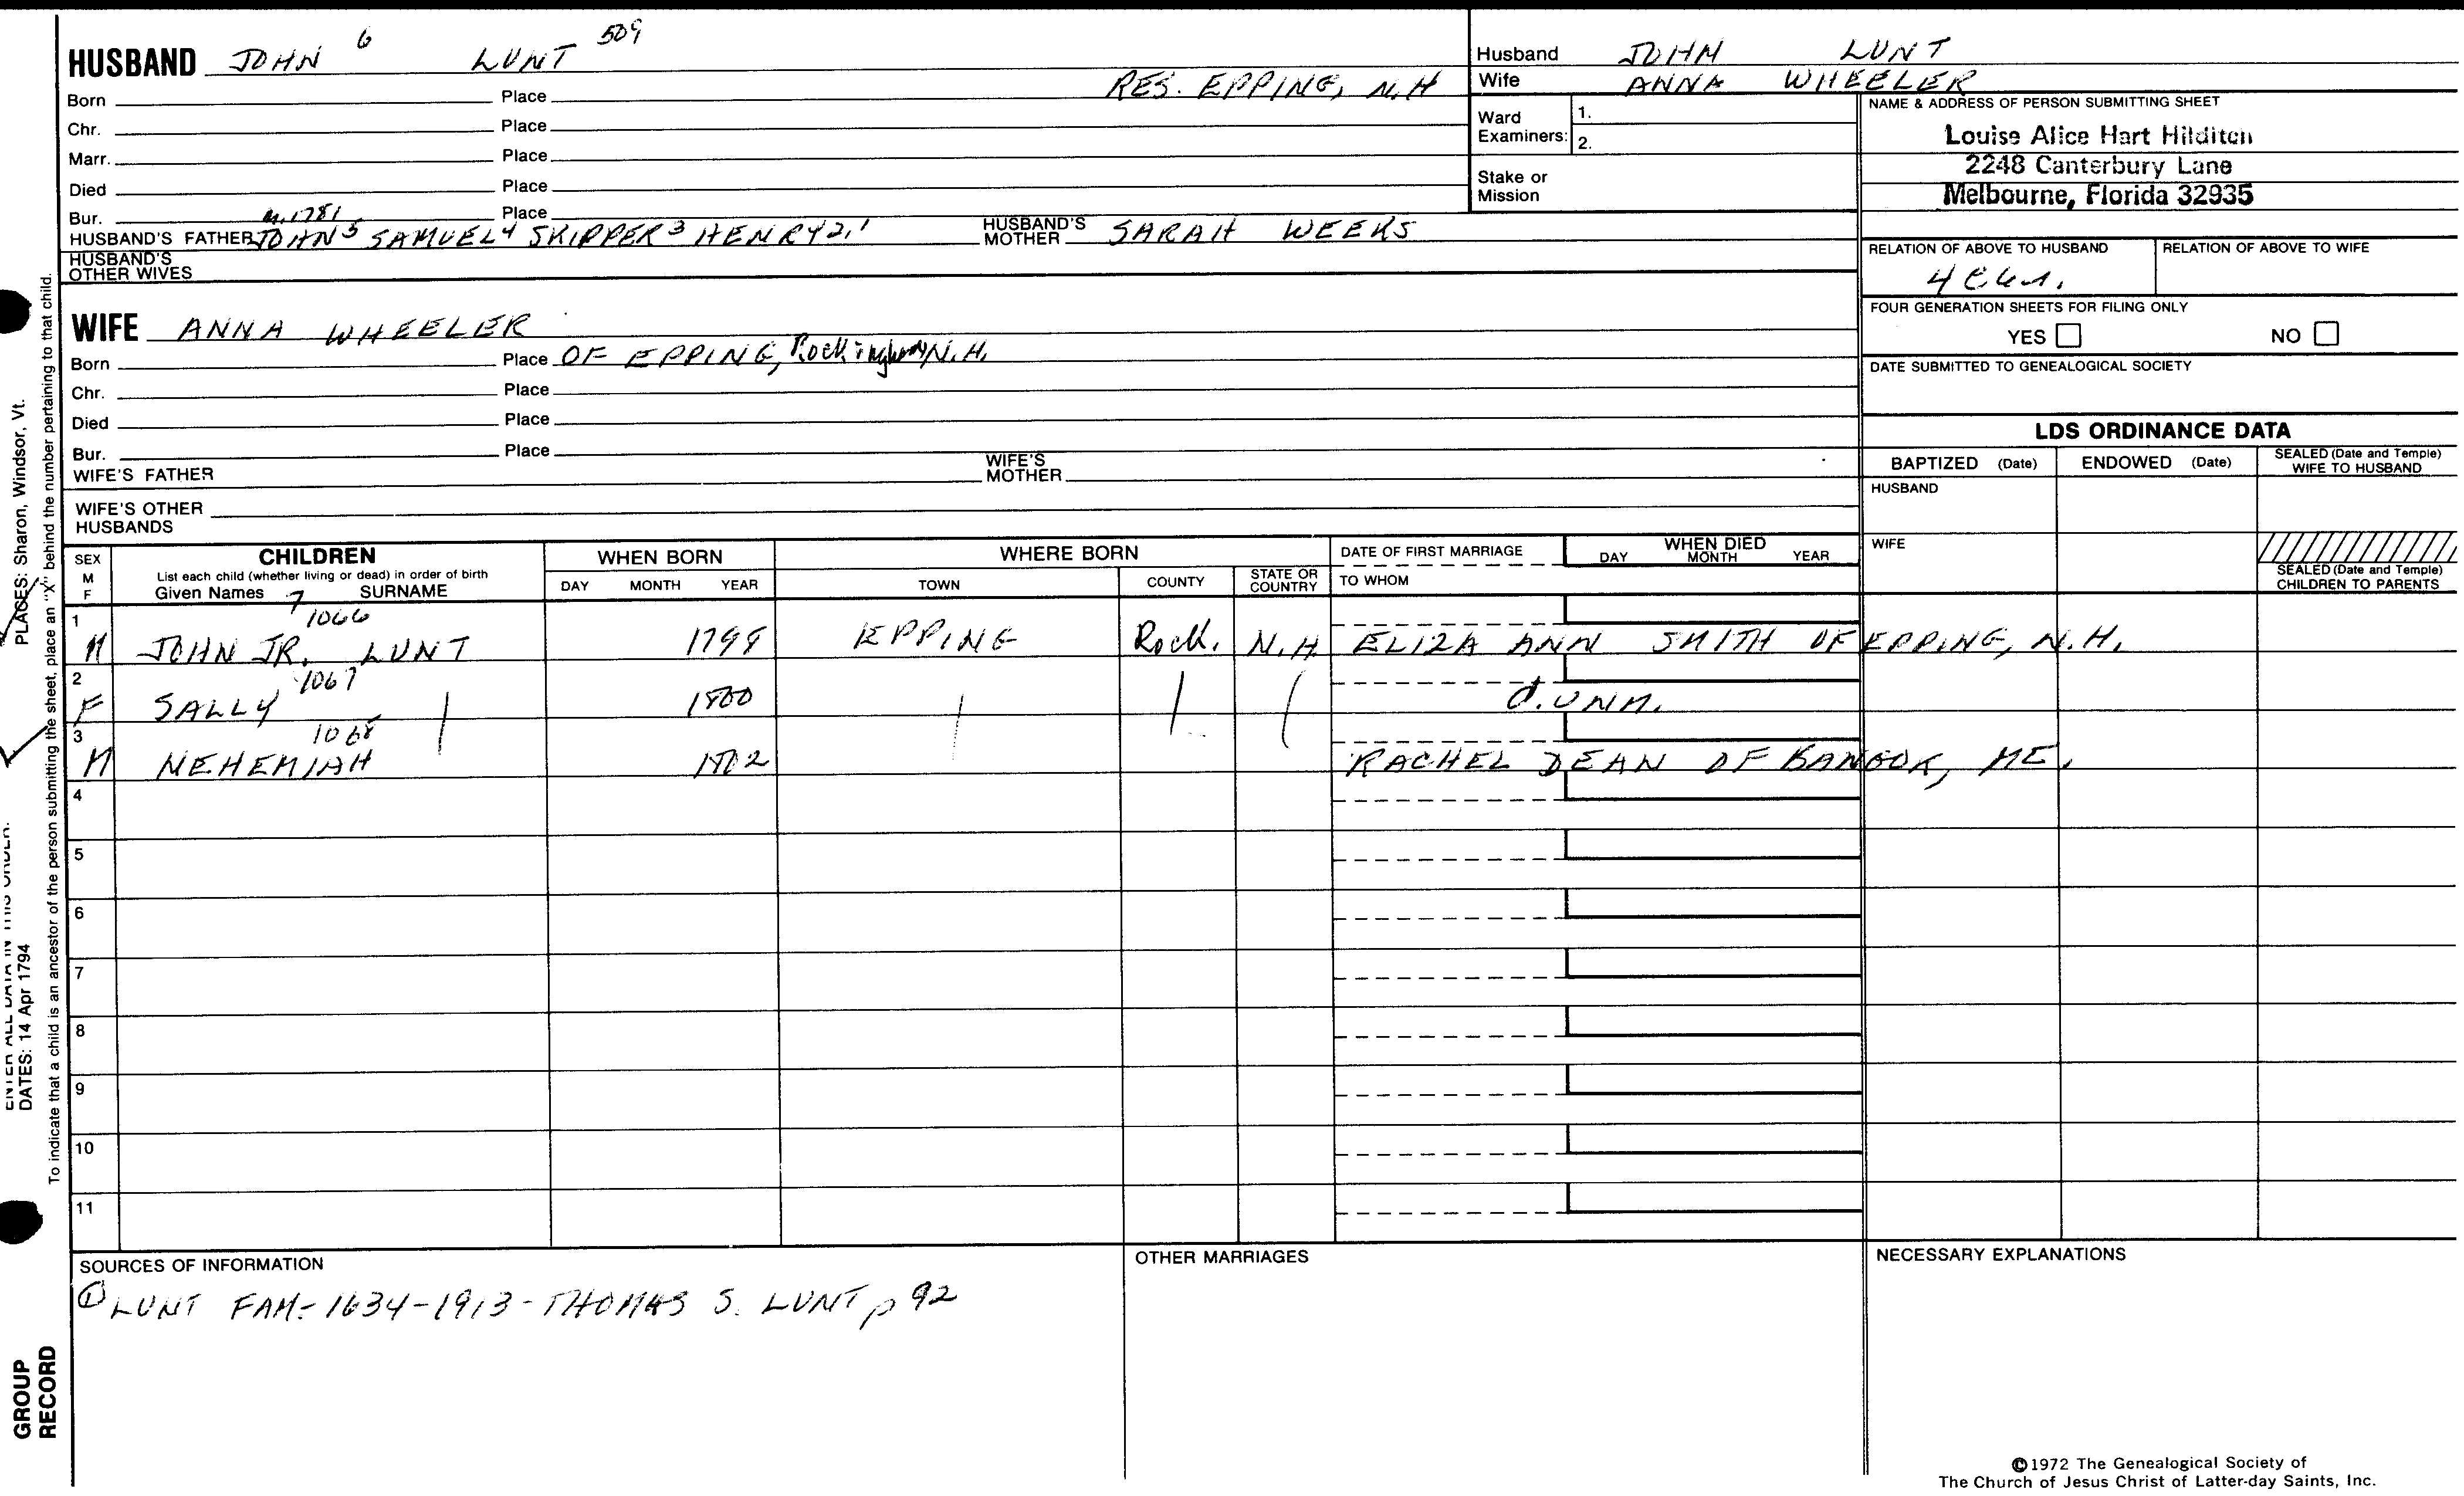 HUSBAND JOHN 6 LUNT 509
RES. EPPING, N.H
Born Place
Chr. Place
Marr. Place
Died Place
Bur. Place
M. 1781
HUSBAND'S FATHER JOHN5 SAMUEL4 SKIPPER3 HENRY2,1 HUSBAND'S MOTHER SARAH WEEKS
HUSBAND'S OTHER WIVES
Husband JOHN LUNT
Wife ANNA WHEELER
Ward Examiners: 1.
2.
Stake or Mission
NAME & ADDRESS OF PERSON SUBMITTING SHEET
Louise Alice Hart Hilditch
2248 Canterbury Lane
Melbourne, Florida 32935
RELATION OF ABOVE TO HUSBAND RELATION OF ABOVE TO WIFE
FOUR GENERATION SHEETS FOR FILING ONLY
YES NO
DATE SUBMITTED TO GENEALOGICAL SOCIETY
WIFE ANNA WHEELER
Born Place OF EPPING, Rockingham, N.H.
Chr. Place
Died Place
Bur. Place
WIFE'S FATHER WIFE'S MOTHER
WIFE'S OTHER HUSBANDS
LDS ORDINANCE DATA
BAPTIZED (Date) ENDOWED (Date) SEALED (Date and Temple) WIFE TO HUSBAND
HUSBAND
WIFE
SEALED (Date and Temple) CHILDREN TO PARENTS
SEX M F
CHILDREN
List each child (whether living or dead) in order of birth
Given Names SURNAME
WHEN BORN
DAY MONTH YEAR
WHERE BORN
TOWN COUNTY STATE OR COUNTRY
DATE OF FIRST MARRIAGE
TO WHOM
WHEN DIED
DAY MONTH YEAR
7 1066
1 M JOHN JR. LUNT 1798 EPPING Rock. N.H. ELIZA ANN SMITH OF EPPING, N.H.
1067
2 F SALLY 1800 d. UNM.
1068
3 M NEHEMIAH 1802 RACHEL DEAN OF BANGOR, ME.
4
5
6
7
8
9
10
11
SOURCES OF INFORMATION
① LUNT FAM- 1634-1913- THOMAS S. LUNT p 92
OTHER MARRIAGES
NECESSARY EXPLANATIONS
©1972 The Genealogical Society of
The Church of Jesus Christ of Latter-day Saints, Inc.
PLACES: Sharon, Windsor, Vt.
To indicate that a child is an ancestor of the person submitting the sheet, place an "X" behind the number pertaining to that child.
ENTER ALL DATA IN THIS ORDER:
DATES: 14 Apr 1794
GROUP
RECORD